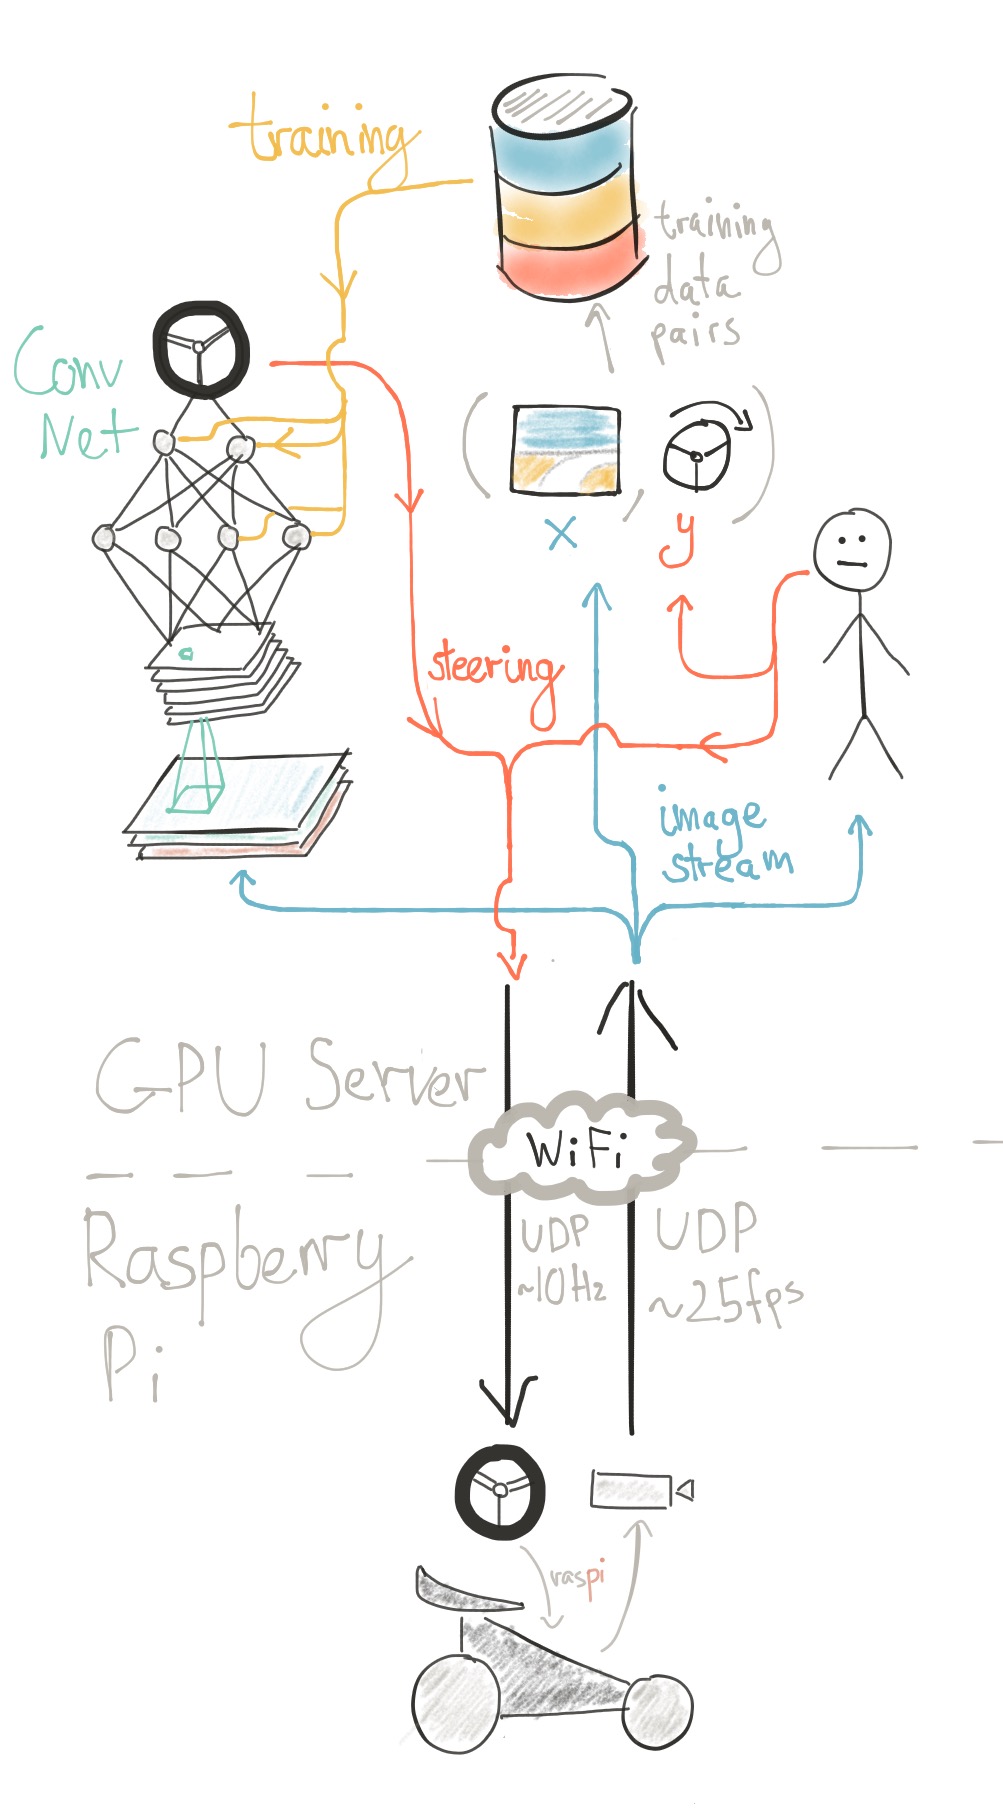 training
training
data
pairs
Conv
Net
( , )
x
y
steering
image
stream
GPU Server
WiFi
Raspberry
Pi
UDP
~10Hz
UDP
~25fps
raspi